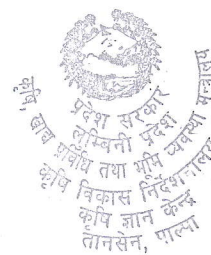 प्रदेश सरकार
लुम्बिनी प्रदेश
कृषि, खाद्य प्रविधि तथा भूमि व्यवस्था मन्त्रालय
कृषि विकास निर्देशनालय
कृषि ज्ञान केन्द्र
तानसेन, पाल्पा